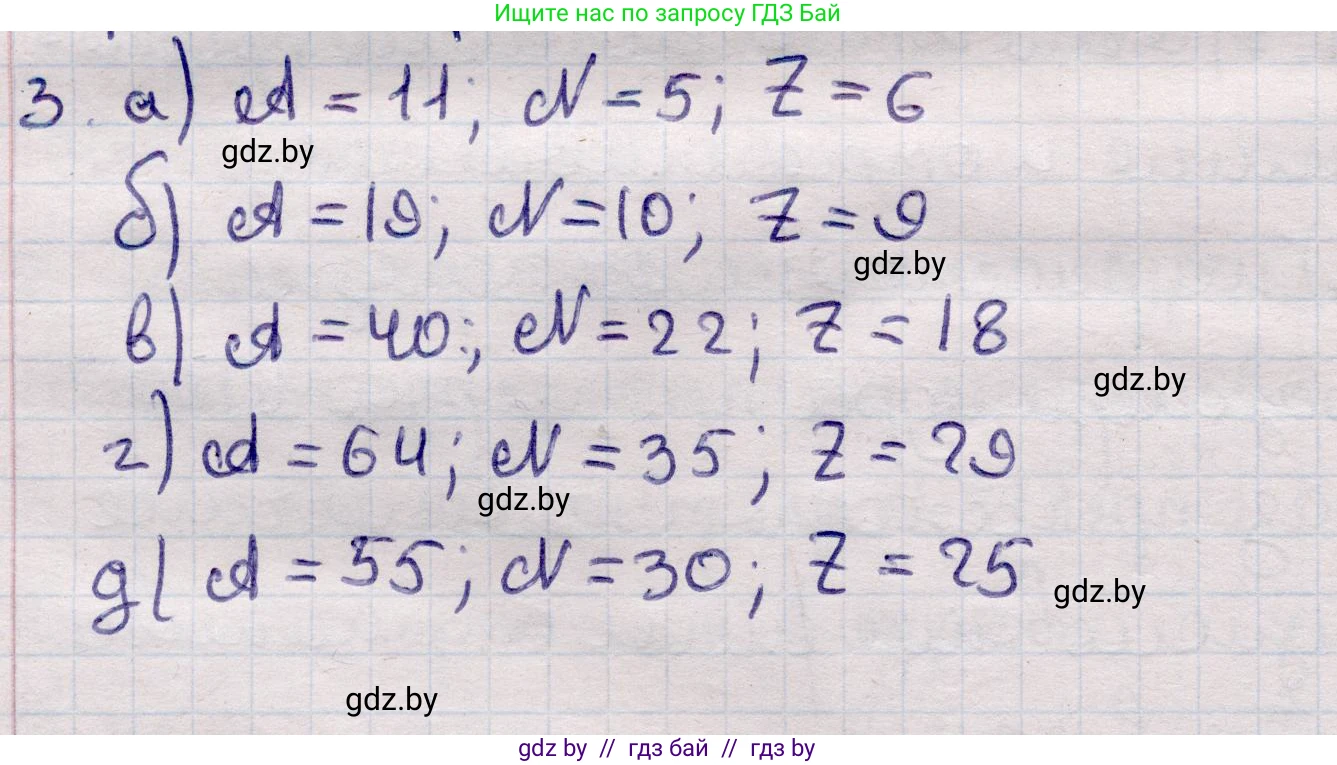 Ищите нас по запросу ГДЗ Бай
3. а) A = 11; N = 5; Z = 6
gdz.by
б) A = 19; N = 10; Z = 9
gdz.by
в) A = 40; N = 22; Z = 18
gdz.by
г) A = 64; N = 35; Z = 29
gdz.by
д) A = 55; N = 30; Z = 25
gdz.by
gdz.by
gdz by // гдз бай // гдз by